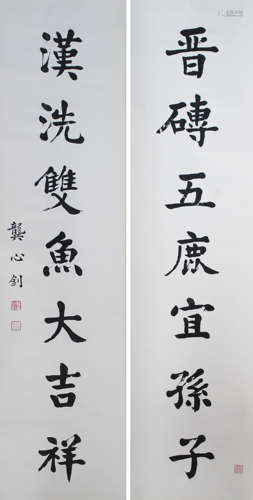 晉磚五鹿宜孫子
漢洗雙魚大吉祥
龔心釗